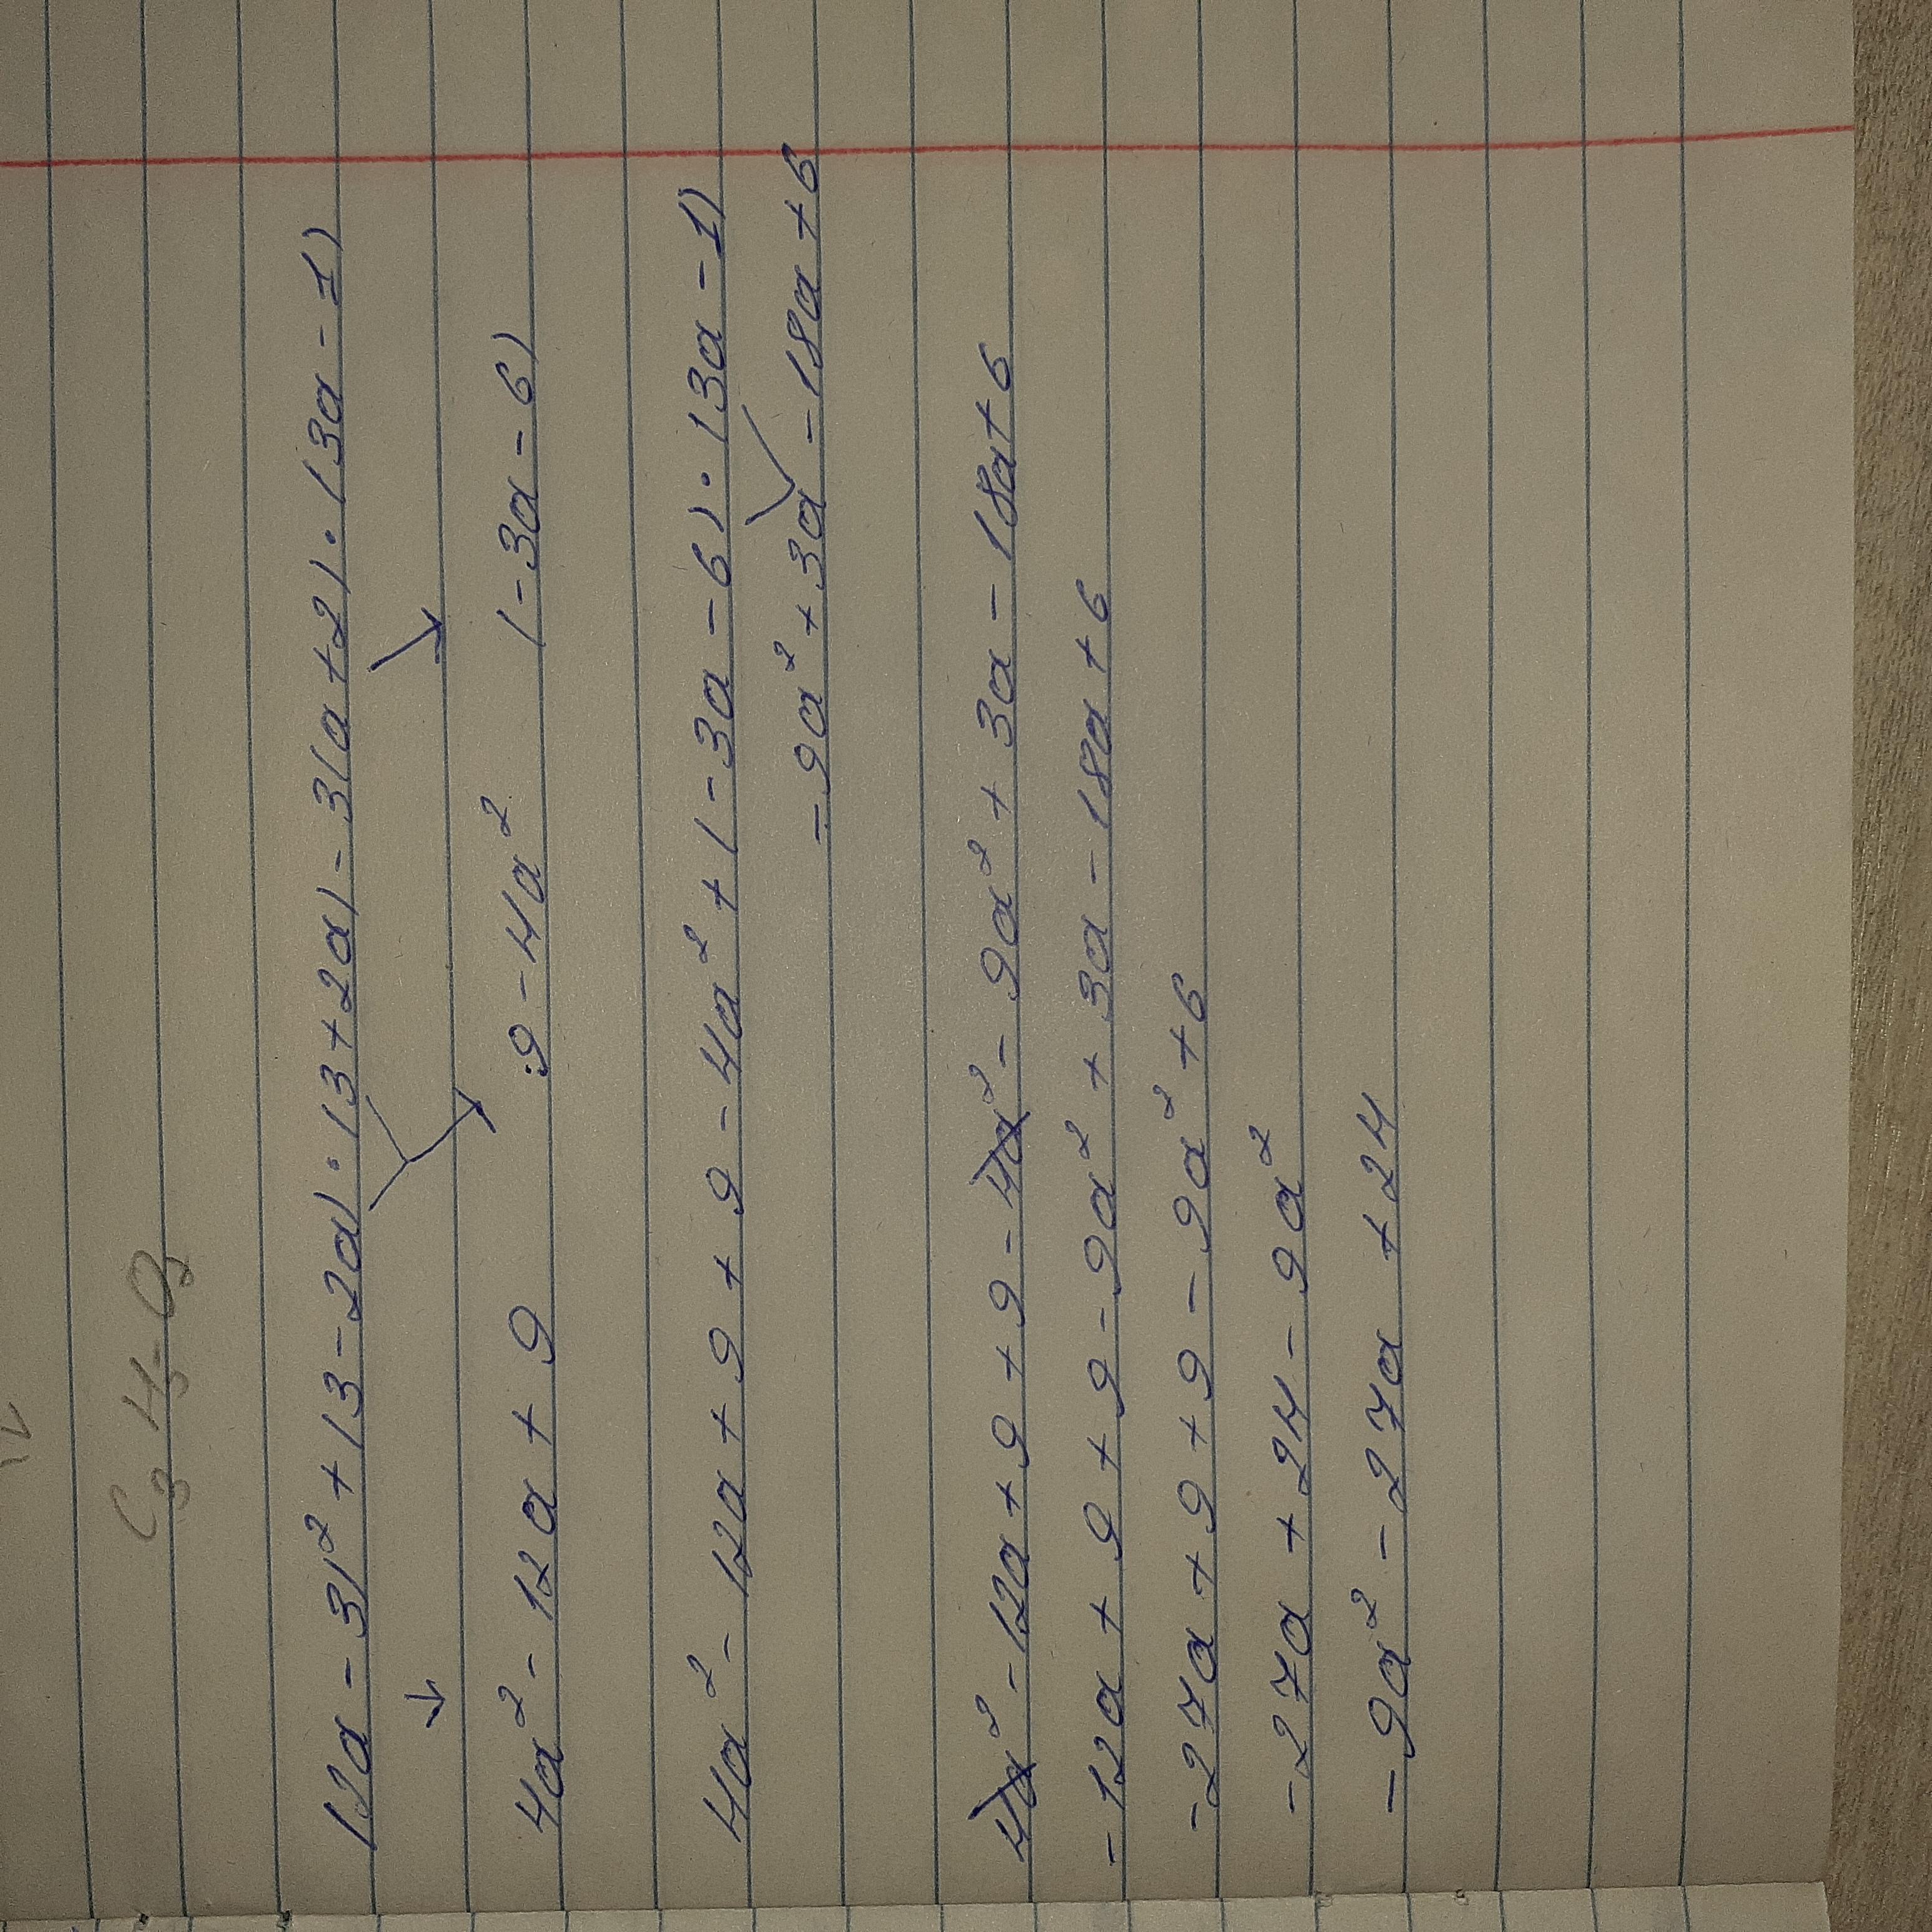 C₃H₅O₃
(2a - 3)² + (3 - 2a) · (3 + 2a) - 3(a + 2) · (3a - 1)
4a² - 12a + 9 9 - 4a² (-3a - 6)
4a² - 12a + 9 + 9 - 4a² + (-3a - 6) · (3a - 1)
-9a² + 3a - 18a + 6
4a² - 12a + 9 + 9 - 4a² - 9a² + 3a - 18a + 6
-12a + 9 + 9 - 9a² + 3a - 18a + 6
-27a + 9 + 9 - 9a² + 6
-27a + 24 - 9a²
-9a² - 27a + 24